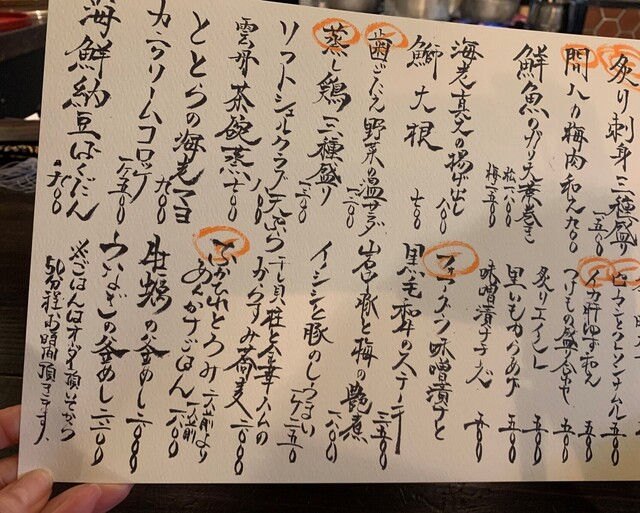 炙り刺身三種盛り 一五〇〇
間八の梅肉和え 九〇〇
鮮魚のガリ大葉巻き
松一八〇〇
梅一五〇〇
海老真丈の揚げ出し 八〇〇
鰤大根 七〇〇
歯ごたえ野菜の温サラダ 一二〇〇
蒸し鶏三種盛り 一三〇〇
ソフトシェルクラブ天ぷら 八〇〇
雲丹茶碗蒸 七〇〇
ととらの海老マヨ 九〇〇
カニクリームコロッケ 一ケ五〇〇
海鮮納豆ばくだん 一八〇〇
ピータンとレンソウナムル 五〇〇
イカ肝ゆず和え
つけもの盛り合せ 五〇〇
炙りエイヒレ 五〇〇
里いもからあげ 五〇〇
味噌漬チーズ
マスタング味噌漬チ
黒毛和牛のステーキ 三五〇〇
岩中豚と梅の艶煮
イシシと豚のしゅうまい 一ケ二五〇
干貝柱と金華ハムの
からすみ蕎麦 二〇〇〇
ふかひれとろみ
あんかけごはん 一六〇〇
二人前より
一人前
牡蠣の釜めし 二〇〇〇
うなぎの釜めし 二六〇〇
※ごはんはオーダー頂いてから
50分程お時間頂きます。